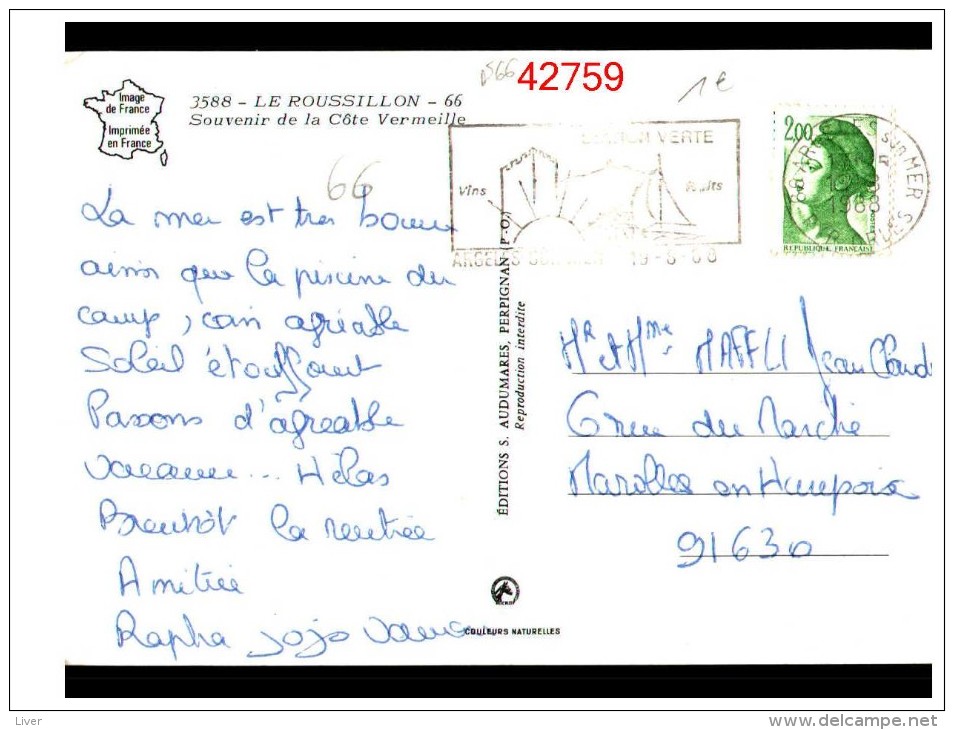 d66 42759
1€
Image
de France
Imprimée
en France
3588 - LE ROUSSILLON - 66
Souvenir de la Côte Vermeille
66
VERTE
Vins
Fruits
ARGELES SUR MER 19-8-88
2,00
ARGELES sur MER
1988
REPUBLIQUE FRANÇAISE
La mer est très bonne
ainsi que la piscine du
camp, coin agréable
Soleil étouffant
Passons d'agréable
vacances... Hélas
Bientôt la rentrée
Amitiée
Rapha jojo
ÉDITIONS S. AUDUMARES, PERPIGNAN (P.-O.)
Reproduction interdite
Mr et Mme MAFFLI Jean Claud
6 rue du Marché
Marolles en Hurepoix
91630
COULEURS NATURELLES
Liver
www.delcampe.net